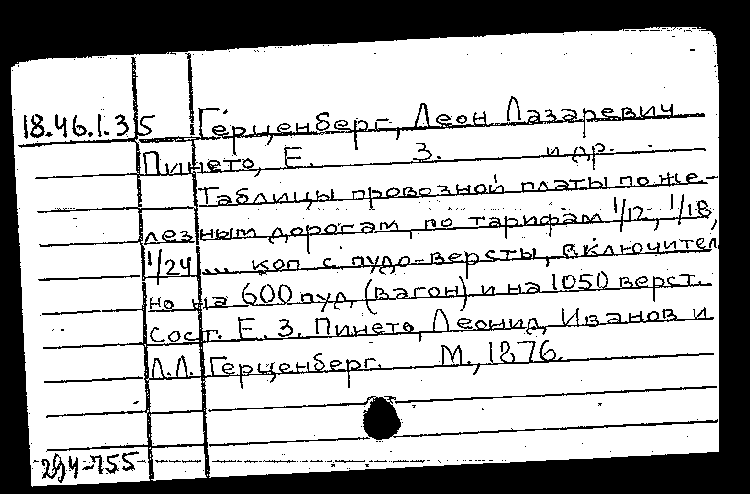 18.46.1.35 Герценберг, Леон Лазаревич
Пинето, Е. З. и др.
Таблицы провозной платы по же-
лезным дорогам, по тарифам 1/12, 1/18,
1/24 ... коп с пудо-версты, включител
но на 600 пуд, (вагон) и на 1050 верст.
Сост. Е. З. Пинето, Леонид, Иванов и
Л.Л. Герценберг. М., 1876.
294-755